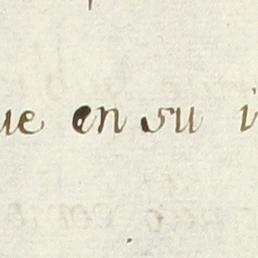 ue en su i